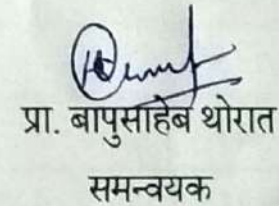 प्रा. बापुसाहेब थोरात
समन्वयक